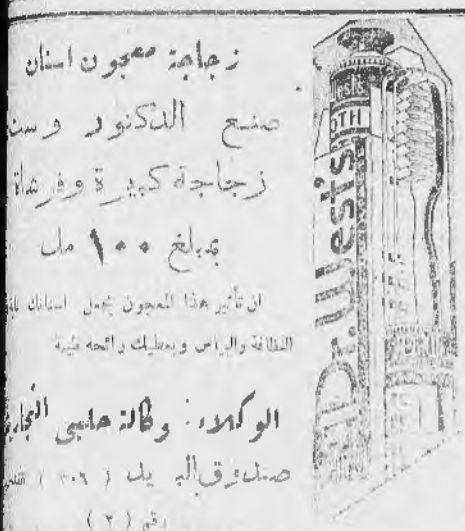 زجاجة معجون اسنان
صنع الدكتور وست
زجاجة كبيرة وفرشاة
بمبلغ ١٠٠ مل
ان تأثير هذا المعجون يجعل اسنانك
النظافة والبياض ويعطيك رائحه طيبة
الوكلاء: وكالة حلبي التجارية
صندوق البريد ( ٣٠٦ )
رقم ( ٢ )
Dr.West's
OTH